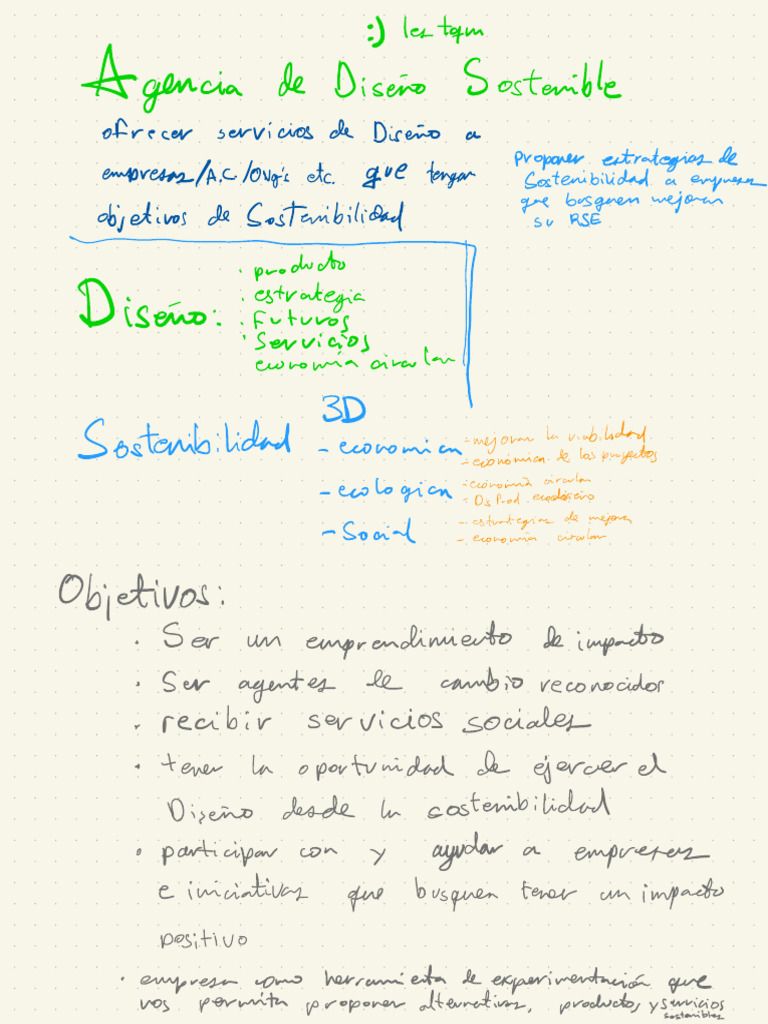 :) les tqm
Agencia de Diseño Sostenible
ofrecer servicios de Diseño a
empresas/A.C./ONg's etc. que tengan
objetivos de Sostenibilidad
Proponer estrategias de
Sostenibilidad a empresas
que busquen mejorar
su RSE
Diseño:
· producto
· estrategia
· Futuros
· Servicios
economía circular
Sostenibilidad
3D
- economica
- mejorar la viabilidad
- económica de los proyectos
- ecologica
- economía circular
- Ds Prod
- Social
- estrategias de mejora
- economía circular
Objetivos:
· Ser un emprendimiento de impacto
· Ser agentes de cambio reconocidos
· recibir servicios sociales
· tener la oportunidad de ejercer el
Diseño desde la sostenibilidad
· participar con y ayudar a empresas
e iniciativas que busquen tener un impacto
positivo
· empresa como herramienta de experimentación que
nos permita proponer alternativas, productos y servicios
sostenibles